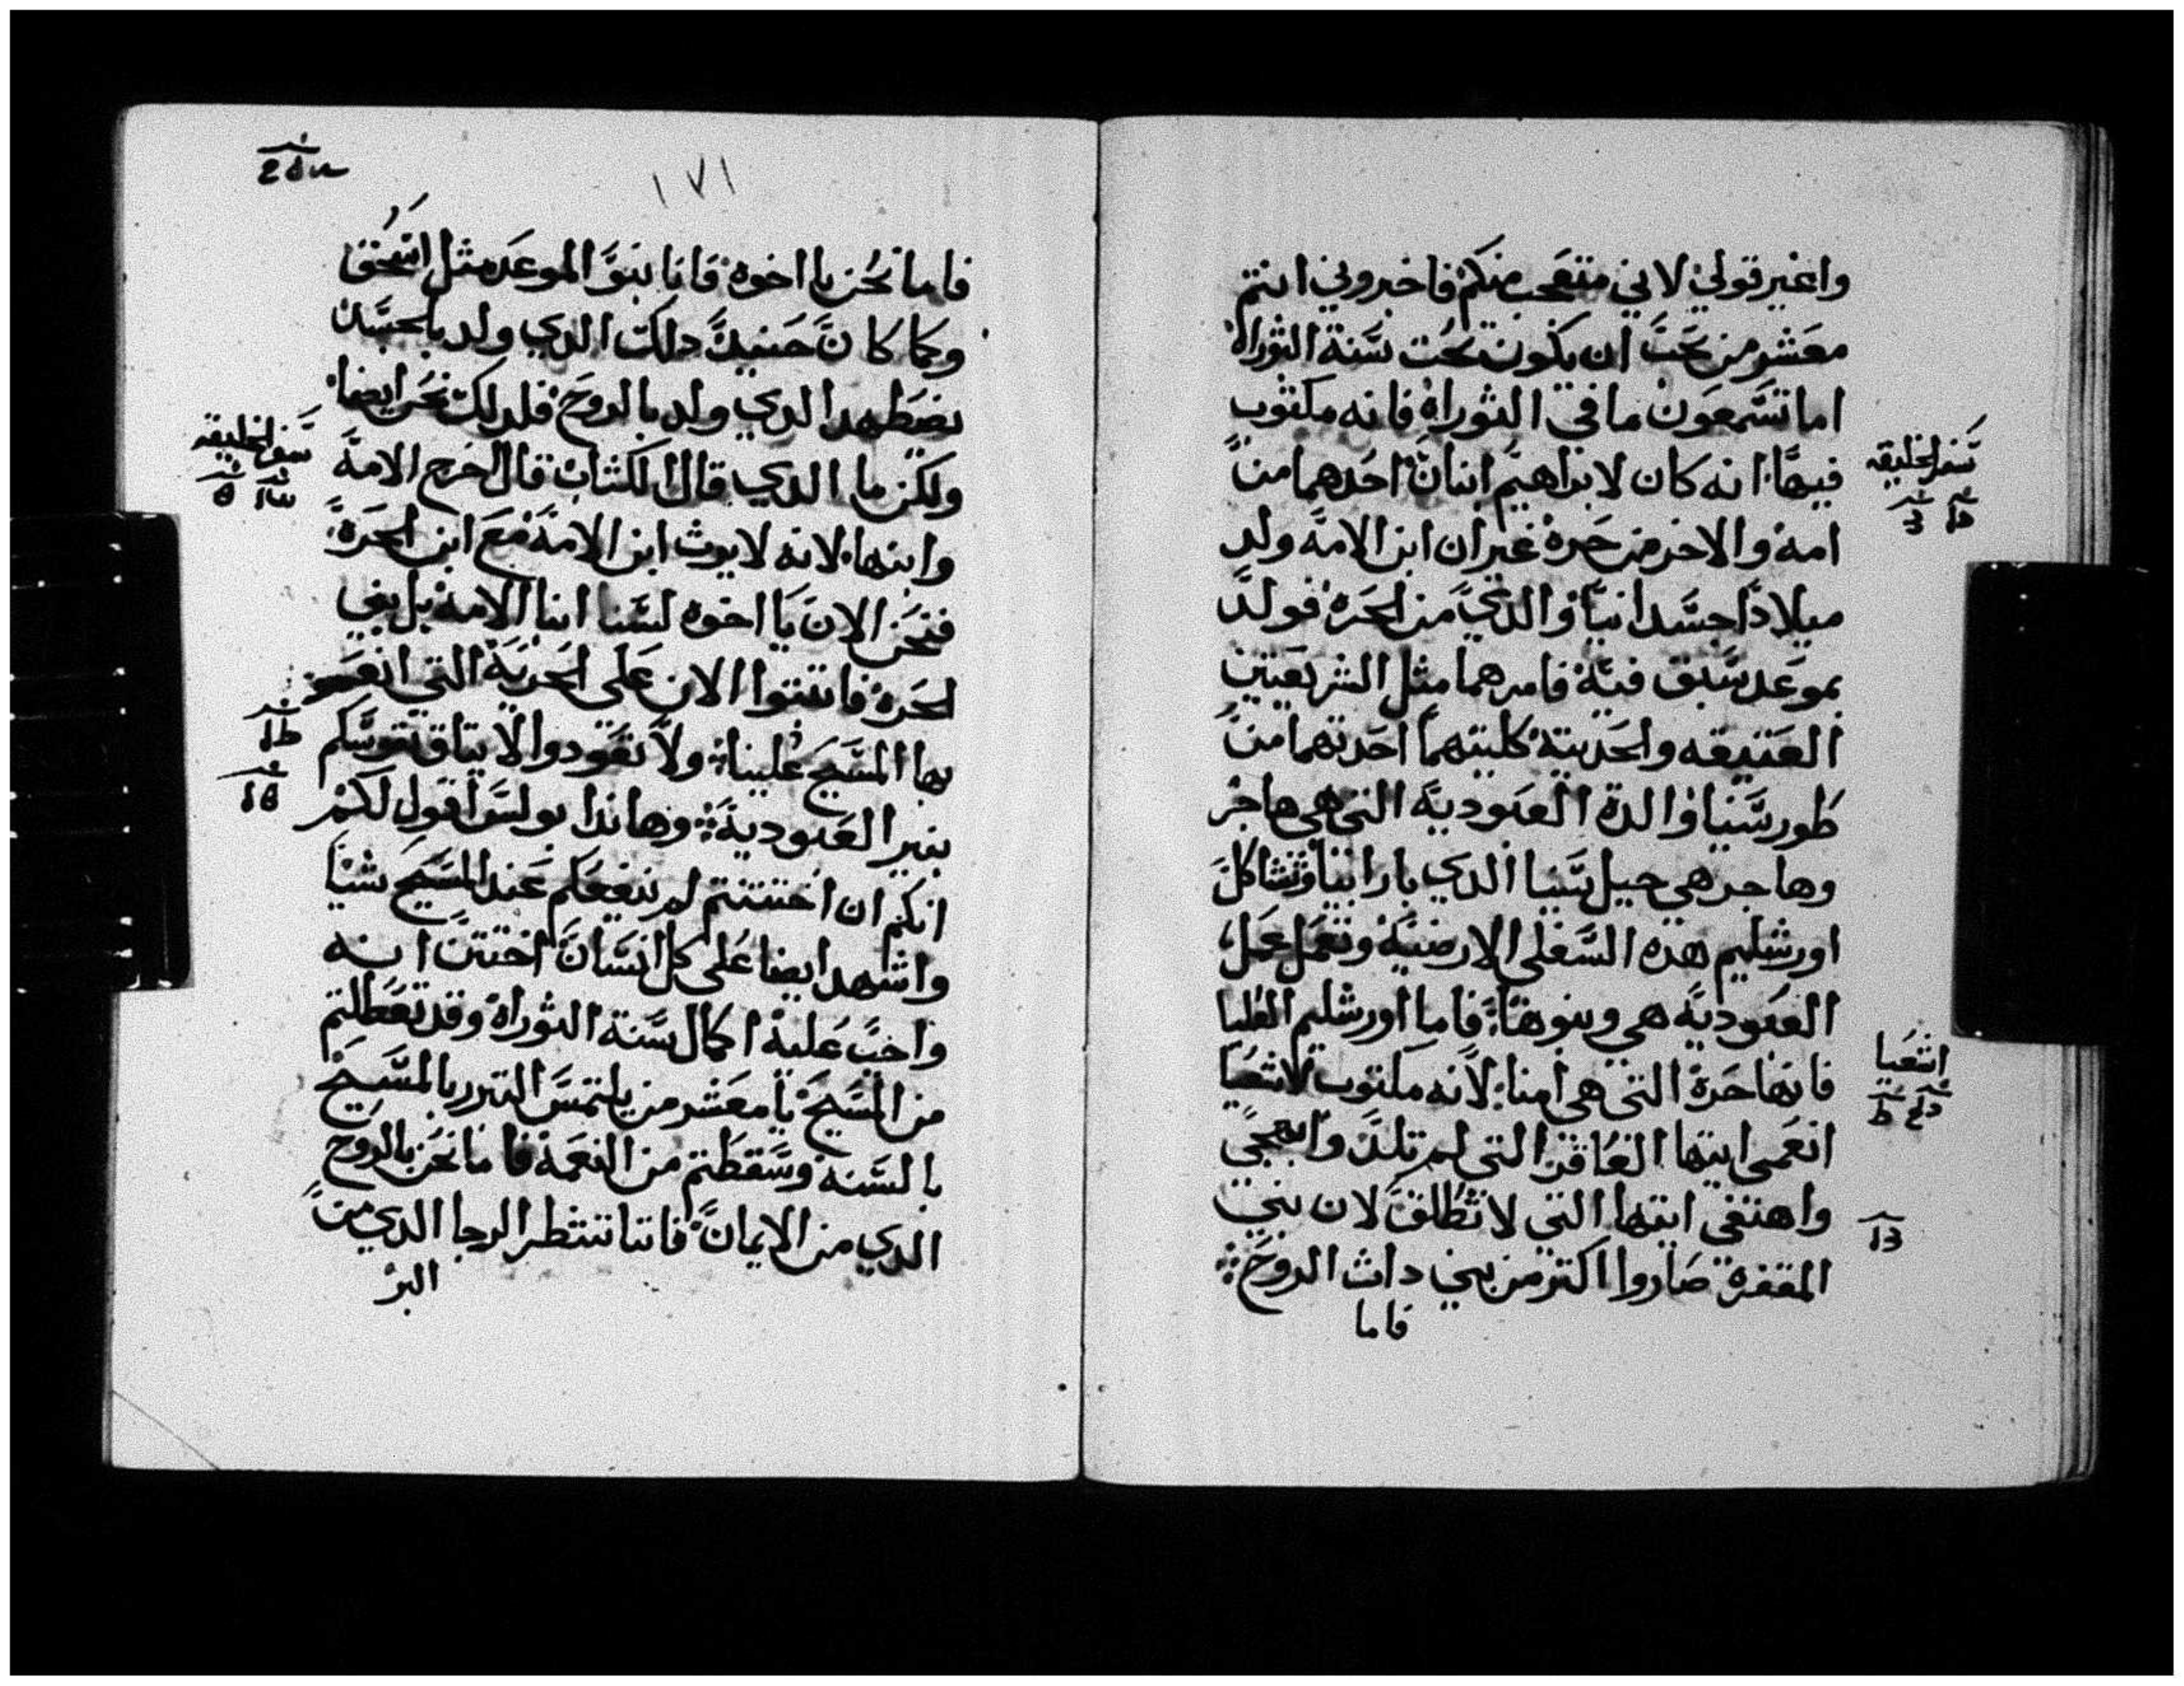 واغير قولي لاني متعجب منكم فاخبروني انتم
معشر من يحب ان يكون تحت سنة التوراه
اما تسمعون ما في التوراه فانه مكتوب
فيها انه كان لابراهيم ابنان احدهما من
امه والاخر من حره غير ان ابن الامه ولد
ميلادا جسدانيا والذي من الحره فولد
بموعد سبق فيه فامرهما مثل الشريعتين
العتيقه والحديته كلتيهما احدتهما من
طور سينا والدة العبوديه التي هي هاجر
وهاجر هي جبل سينا الدي بارابيا وتشاكل
اورشليم هده السفلي الارضيه وتعمل عمل
العبوديه هي وبنوها فاما اورشليم العليا
فانها حرة التي هي امنا لانه مكتوب لاشعيا
انعمي ايتها العاقر التي لم تلد وابهجي
واهتفي ايتها التي لا تطلق لان بني
المقفره صاروا اكتر من بني دات الزوج
فاما
سفر الخليقه
اشعيا
١٧١
فاما نحن يا اخوه فانا بنو الموعد مثل اسحق
وكما كان حينيد دلك الدي ولد بالجسد
يضطهد الدي ولد بالروح فلدلك نحن ايضا
ولكن ما الدي قال الكتاب قال اخرج الامه
وابنها لانه لا يرث ابن الامه مع ابن الحره
فنحن الان يا اخوه لسنا ابنا الامه بل بني
لحره فاثبتوا الان على الحريه التي انعم
بها المسيح علينا ولا تعودوا لايتاق نفوسكم
بنير العبوديه وهاندا بولس اقول لكم
انكم ان اختتنتم لم ينفعكم عند المسيح شيا
واشهد ايضا على كل انسان اختتن انه
واجب عليه اكمال سنة التوراه وقد تعطلتم
من المسيح يا معشر من يلتمس التبرر بالمسيح
بالسنه وسقطتم من النعمه فاما نحن بالروح
الدي من الايمان فاننا ننتظر الرجا الدي من
البر
سفر الخليقه